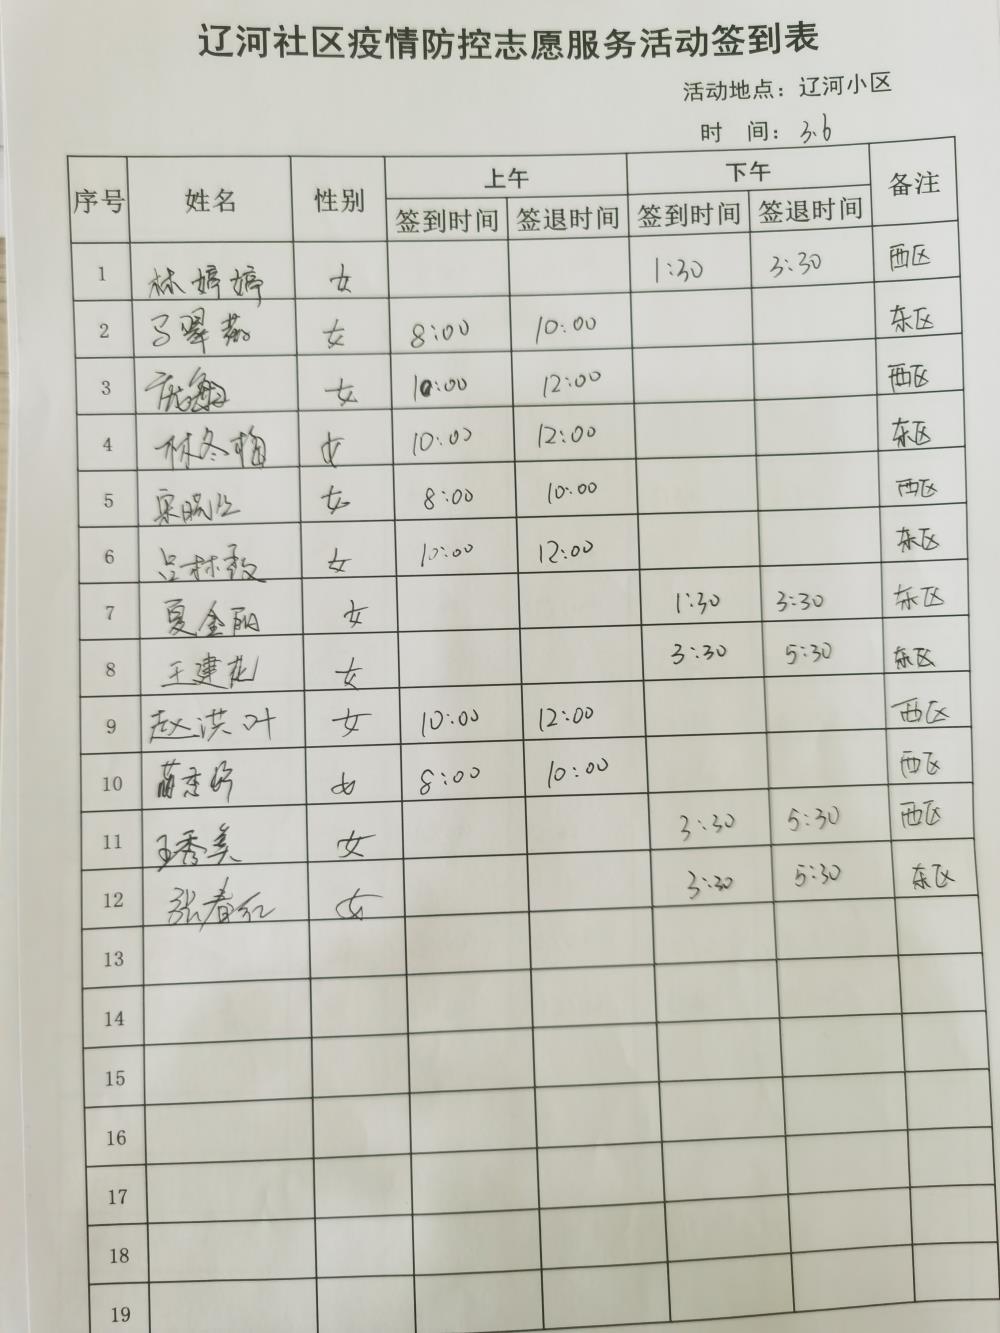 辽河社区疫情防控志愿服务活动签到表
活动地点：辽河小区
时 间：3.6
序号 姓名 性别 上午 下午 备注
签到时间 签退时间 签到时间 签退时间
1 林婷婷 女 1:30 3:30 西区
2 马翠 女 8:00 10:00 东区
3 女 10:00 12:00 西区
4 林冬梅 女 10:00 12:00 东区
5 宋晓 女 8:00 10:00 西区
6 吕林 女 10:00 12:00 东区
7 夏金丽 女 1:30 3:30 东区
8 王建花 女 3:30 5:30 东区
9 赵洪叶 女 10:00 12:00 西区
10 女 8:00 10:00 西区
11 王秀美 女 3:30 5:30 西区
12 张春红 女 3:30 5:30 东区
13
14
15
16
17
18
19